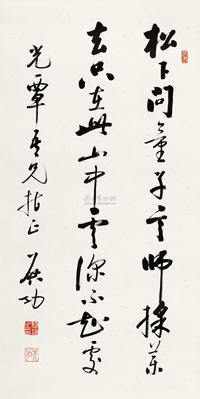 松下问童子言师採药
去只在此山中云深不知处
光覃吾兄指正 启功